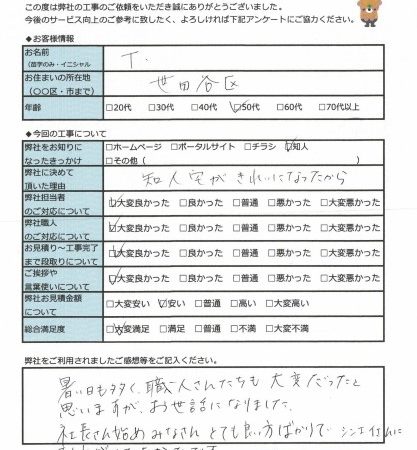 この度は弊社の工事のご依頼をいただき誠にありがとうございました。
今後のサービス向上のご参考に致したく、よろしければ下記アンケートにご協力ください。
◆お客様情報
お名前
(苗字のみ・イニシャル
T.
お住まいの所在地
(〇〇区・市まで)
世田谷区
年齢 □20代 □30代 □40代 ☑50代 □60代 □70代以上
◆今回の工事について
弊社をお知りに
なったきっかけ
□ホームページ □ポータルサイト □チラシ ☑知人
□その他( )
弊社に決めて
頂いた理由
知人宅がきれいになったから
弊社担当者
のご対応について
☑大変良かった □良かった □普通 □悪かった □大変悪かった
弊社職人
のご対応について
☑大変良かった □良かった □普通 □悪かった □大変悪かった
お見積り~工事完了
まで段取りについて
☑大変良かった □良かった □普通 □悪かった □大変悪かった
ご挨拶や
言葉使いについて
☑大変良かった □良かった □普通 □悪かった □大変悪かった
弊社お見積金額
について
□大変安い ☑安い □普通 □高い □大変高い
総合満足度 ☑大変満足 □満足 □普通 □不満 □大変不満
弊社をご利用されましたご感想等をご記入ください。
暑い日も多く、職人さんたちも大変だったと
思いますが、お世話になりました。
社長さん始めみなさんとても良い方ばかりで